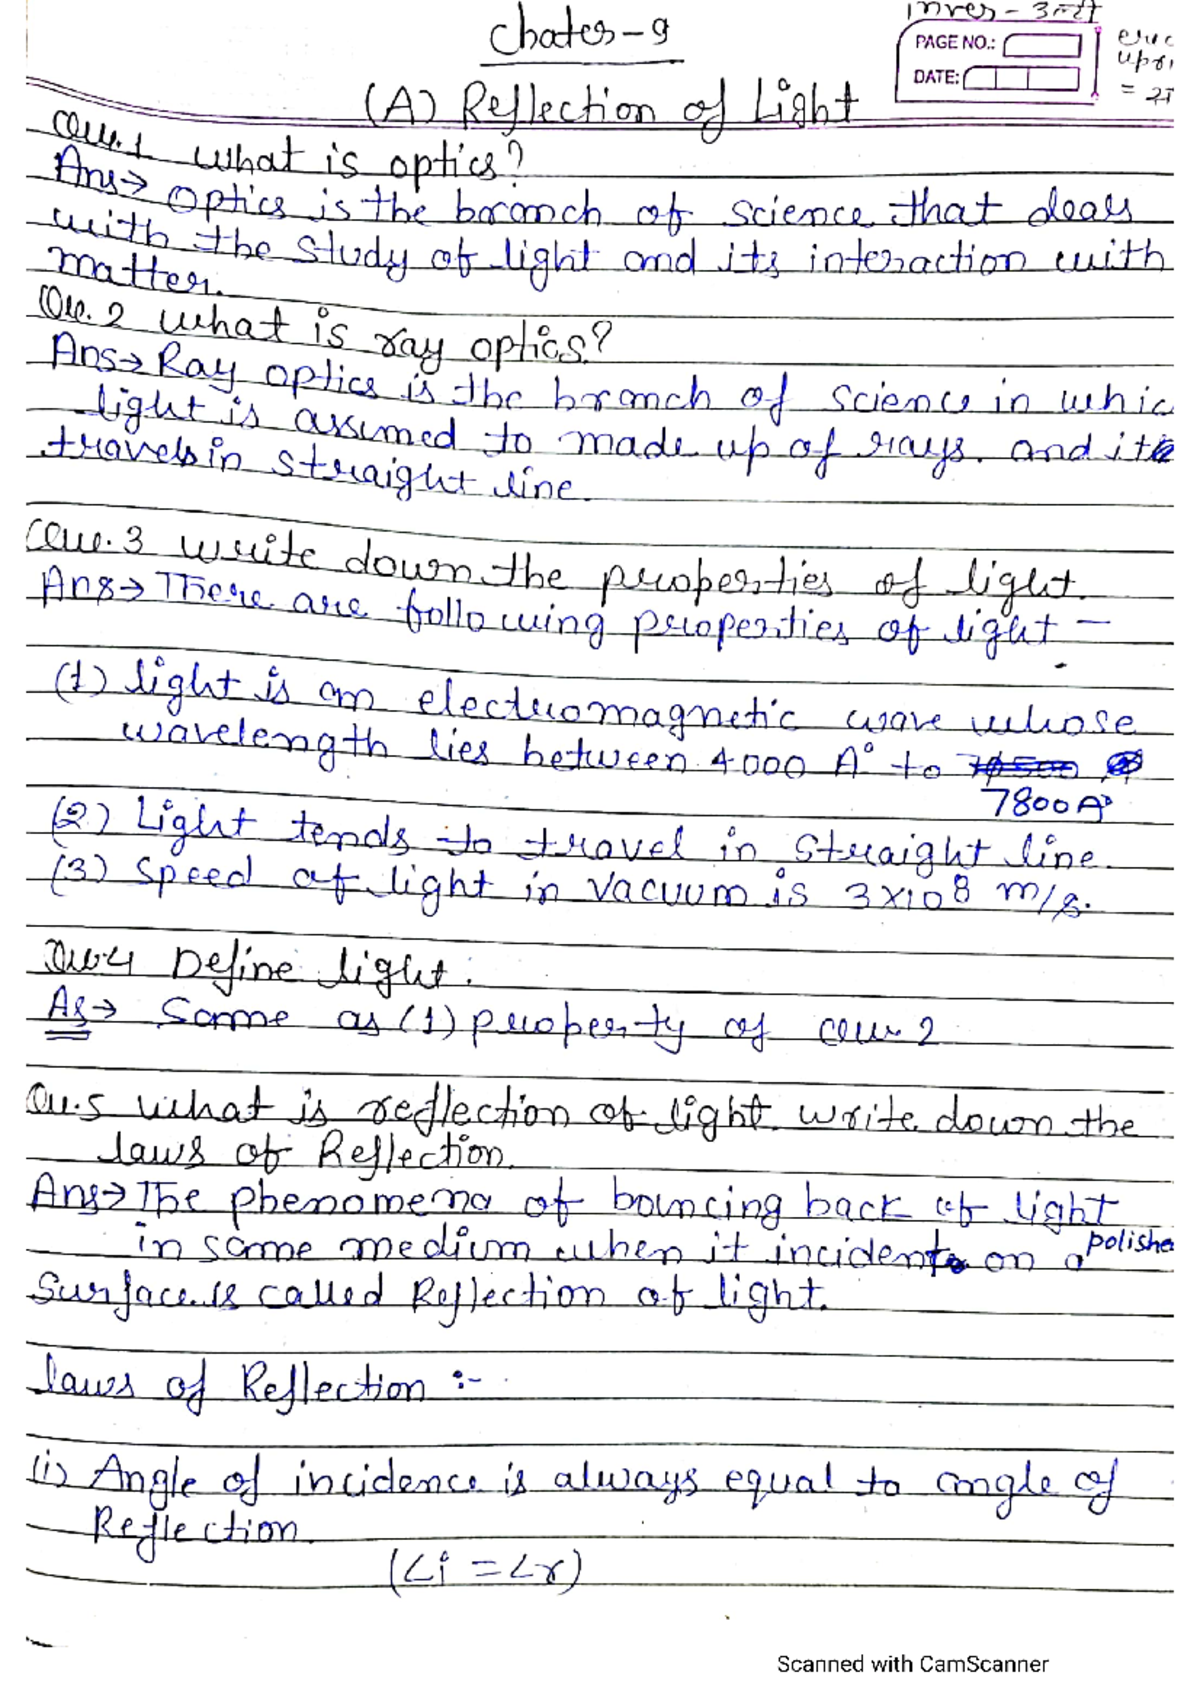 Chater-9
inver - उल्टा
PAGE NO.:
DATE:
(A) Reflection of Light
Que.1 What is optics?
Ans→ Optics is the branch of science that deals
with the study of light and its interaction with
matter.
Que.2 What is ray optics?
Ans→ Ray optics is the branch of science in whic
light is assumed to made up of rays. and it
travels in straight line.
Que.3 write down the properties of light.
Ans→ There are following properties of light -
(1) light is an electromagnetic wave whose
wavelength lies between 4000 A° to
7800A°
(2) Light tends to travel in straight line.
(3) Speed of light in vacuum is 3×10 8 m/s.
Que4 Define light.
As→ Same as (1) property of Que 2
Qu.5 What is reflection of light. write down the
laws of Reflection.
Ans→ The phenomena of bouncing back of light
in same medium when it incident on a polishe
Surface is called Reflection of light.
laws of Reflection :-
(i) Angle of incidence is always equal to angle of
Reflection.
(∠i = ∠r)
Scanned with CamScanner